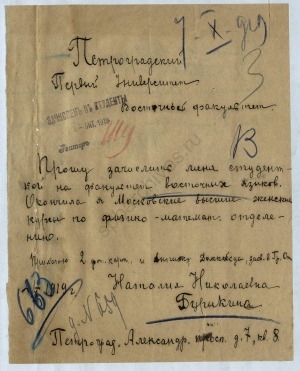 7-X-919
Петроградский
Первый Университет
3
Восточный факультет.
ЗАЧИСЛЕНЪ ВЪ СТУДЕНТЫ
ОКТ. 1919
В
Прошу зачислить меня студент-
кой на факультет восточных языков.
Окончила я Московские высшие женские
курсы по физико-математ. отделе-
нию.
Прилагаю 2 фот. карт. и
Наталия Николаевна
Бурикина
Петроград. Александр. просп. д. 7, кв. 8.